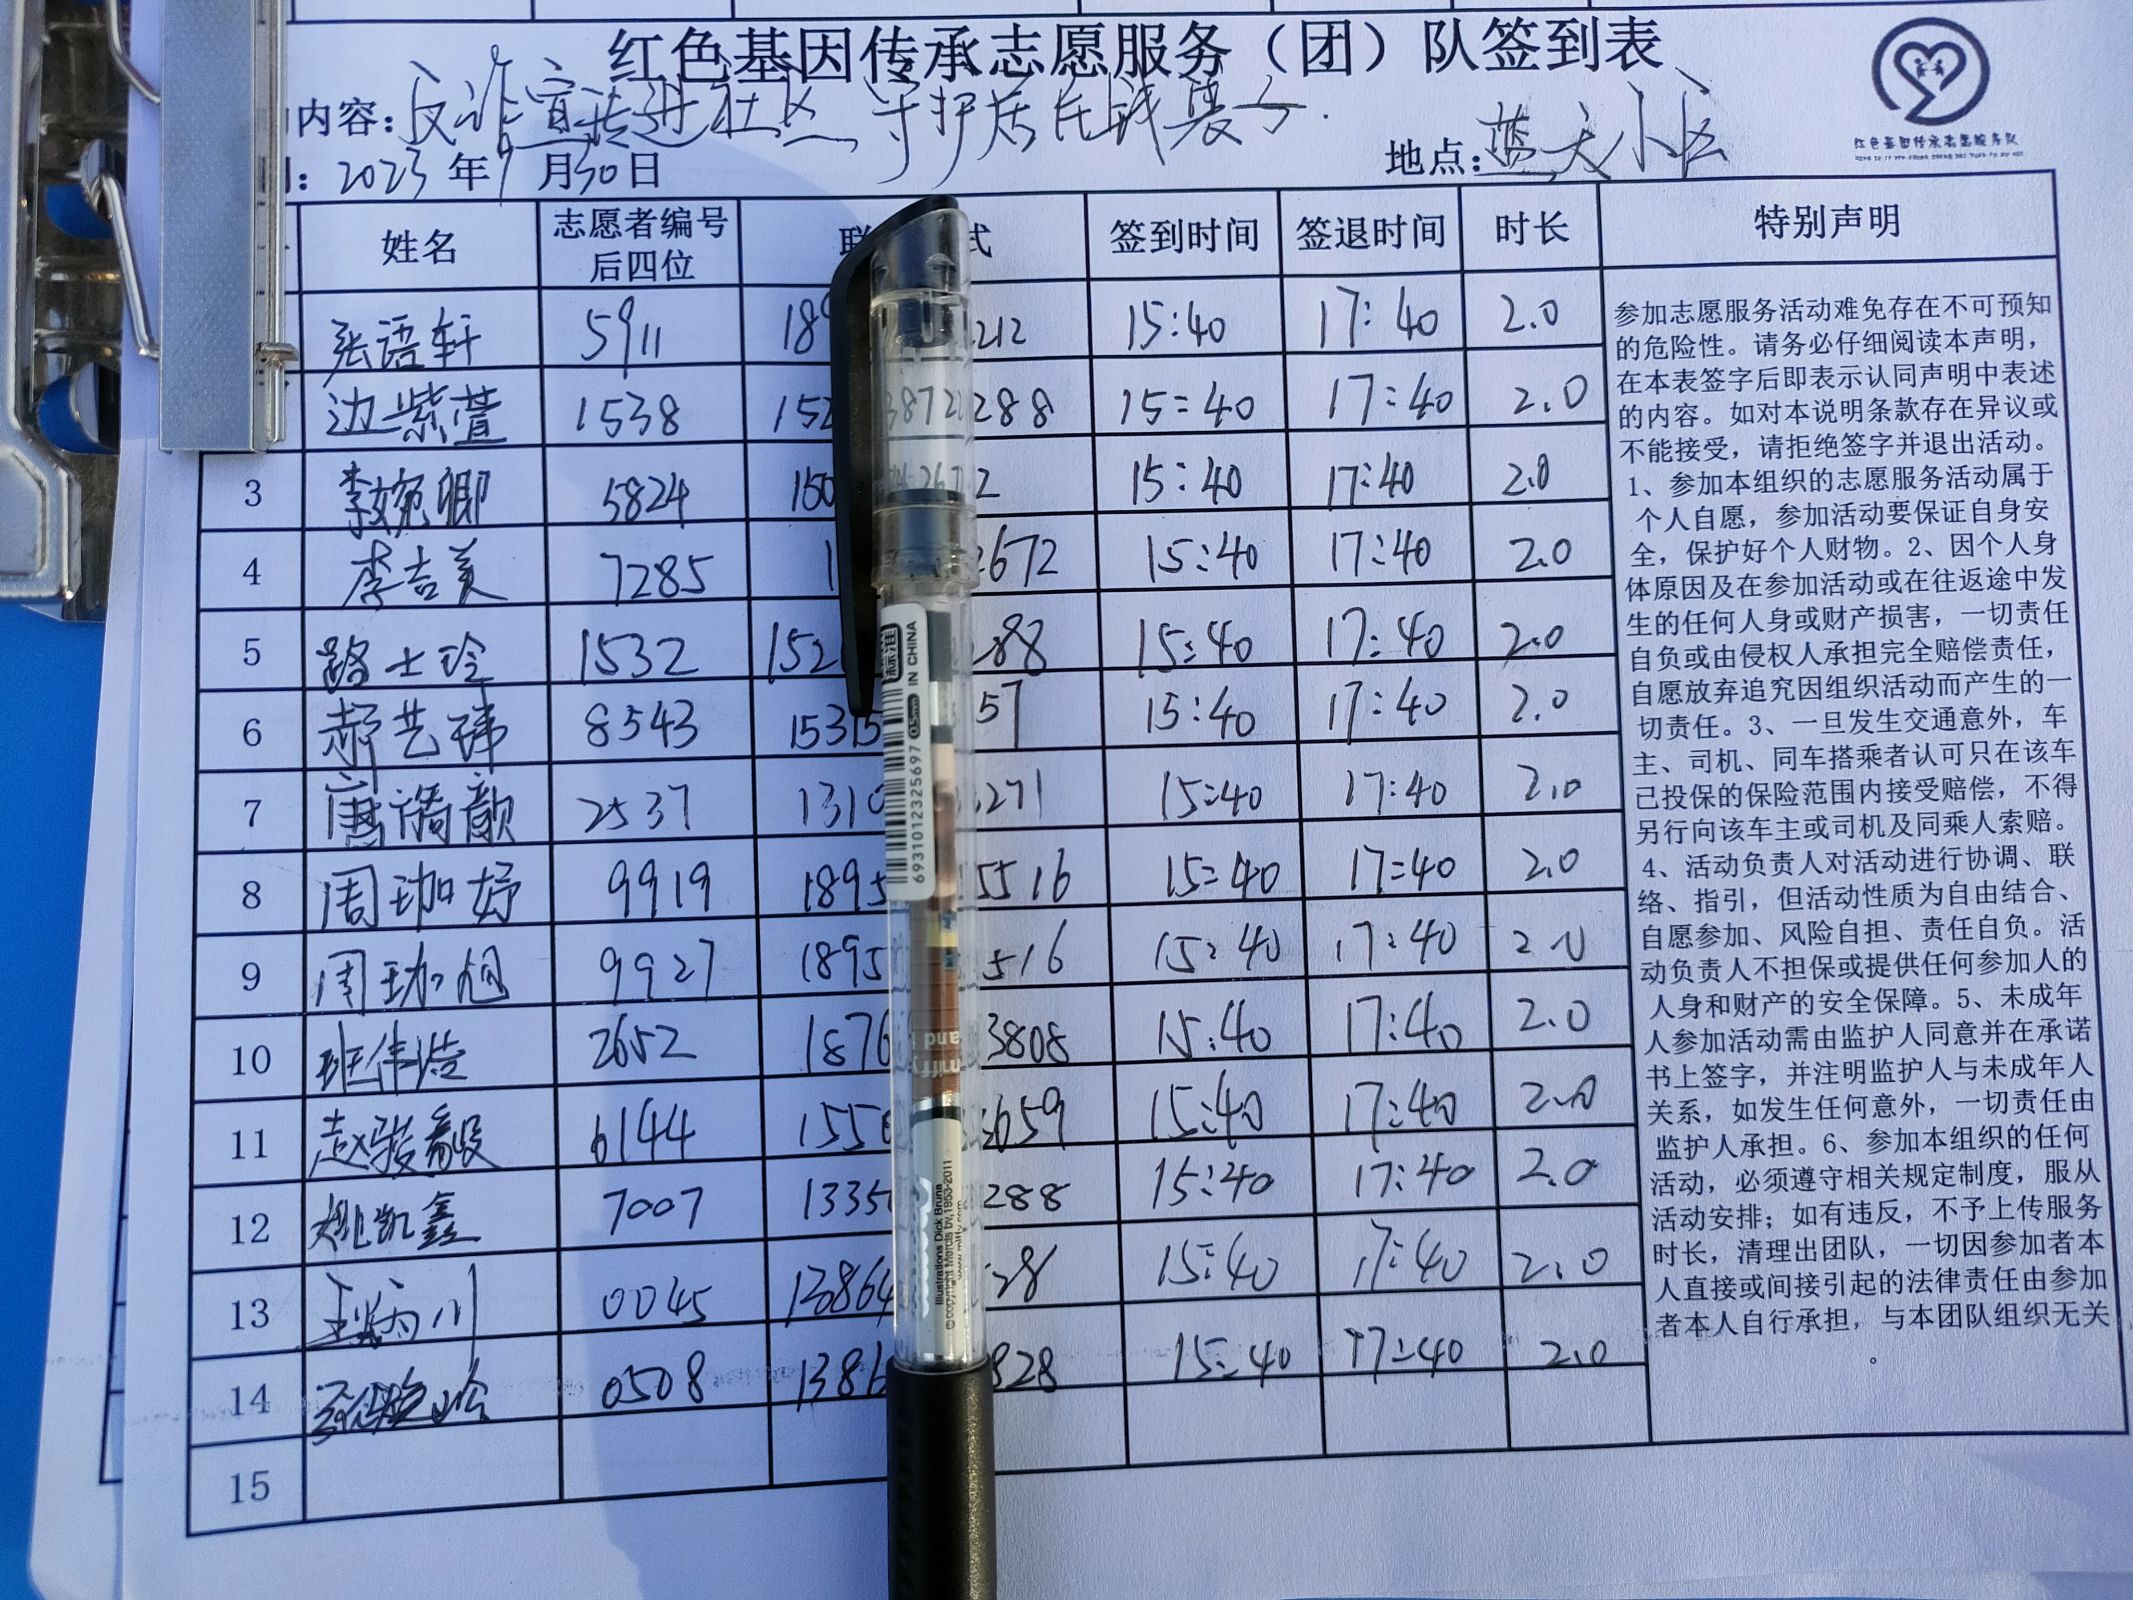 红色基因传承志愿服务（团）队签到表
内容：反诈宣传进社区 守护居民钱袋子.
2023年9月30日 地点：蓝天小区
红色基因传承志愿服务队
姓名 志愿者编号后四位 联 式 签到时间 签退时间 时长 特别声明
张语轩 5911 18 212 15:40 17:40 2.0
边紫萱 1538 152 3872 288 15:40 17:40 2.0
3 李婉卿 5824 150 267 2 15:40 17:40 2.0
4 李吉美 7285 1 672 15:40 17:40 2.0
5 路士玲 1532 152 288 15:40 17:40 2.0
6 郝艺玮 8543 15315 57 15:40 17:40 2.0
7 2537 1310 271 15:40 17:40 2.0
8 周珈妤 9919 1895 5516 15:40 17:40 2.0
9 周珈旭 9927 1895 516 15:40 17:40 2.0
10 班伟浩 2652 1876 3808 15:40 17:40 2.0
11 赵骏毅 6144 155 659 15:40 17:40 2.0
12 姚凯鑫 7007 1335 288 15:40 17:40 2.0
13 0045 13864 28 15:40 17:40 2.0
14 0508 1386 828 15:40 17:40 2.0
15
参加志愿服务活动难免存在不可预知
的危险性。请务必仔细阅读本声明，
在本表签字后即表示认同声明中表述
的内容。如对本说明条款存在异议或
不能接受，请拒绝签字并退出活动。
1、参加本组织的志愿服务活动属于
个人自愿，参加活动要保证自身安
全，保护好个人财物。2、因个人身
体原因及在参加活动或在往返途中发
生的任何人身或财产损害，一切责任
自负或由侵权人承担完全赔偿责任，
自愿放弃追究因组织活动而产生的一
切责任。3、一旦发生交通意外，车
主、司机、同车搭乘者认可只在该车
已投保的保险范围内接受赔偿，不得
另行向该车主或司机及同乘人索赔。
4、活动负责人对活动进行协调、联
络、指引，但活动性质为自由结合、
自愿参加、风险自担、责任自负。活
动负责人不担保或提供任何参加人的
人身和财产的安全保障。5、未成年
人参加活动需由监护人同意并在承诺
书上签字，并注明监护人与未成年人
关系，如发生任何意外，一切责任由
监护人承担。6、参加本组织的任何
活动，必须遵守相关规定制度，服从
活动安排；如有违反，不予上传服务
时长，清理出团队，一切因参加者本
人直接或间接引起的法律责任由参加
者本人自行承担，与本团队组织无关
。
标准
0.5mm IN CHINA
6931012325697
miffy and
Illustrations Dick Bruna
© copyright Mercis bv,1953-2011
www.miffy.com